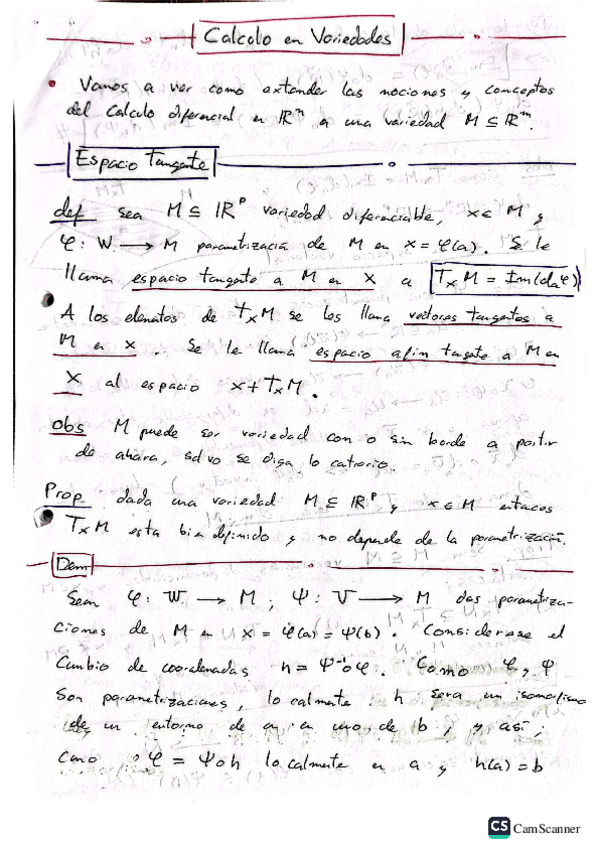 Calculo en Variedades
• Vamos a ver como extender las nociones y conceptos
del Calculo diferencial en ℝⁿ a una variedad M ⊆ ℝᵐ.
Espacio Tangente
def sea M ⊆ ℝᵖ variedad diferenciable, x ∈ M y
φ: W ⟶ M parametrización de M en x = φ(a). Se le
llama espacio tangente a M en x a TₓM = Im(dₐφ)
A los elementos de TₓM se les llama vectores tangentes a
M en x. Se le llama espacio afin tangente a M en
x al espacio x + TₓM.
obs M puede ser variedad con o sin borde a partir
de ahora, salvo se diga lo contrario.
Prop dada una variedad M ⊆ ℝᵖ y x ∈ M entonces
TₓM esta bien definido y no depende de la parametrización.
Dem
Sean φ: W ⟶ M; Ψ: V ⟶ M dos parametriza-
ciones de M en x = φ(a) = Ψ(b). Considerase el
Cambio de coordenadas h = Ψ⁻¹∘φ. Como φ, Ψ
Son parametrizaciones, localmente h sera un isomorfismo
de un entorno de a en uno de b, y así,
como φ = Ψ∘h localmente en a y h(a) = b
CS CamScanner